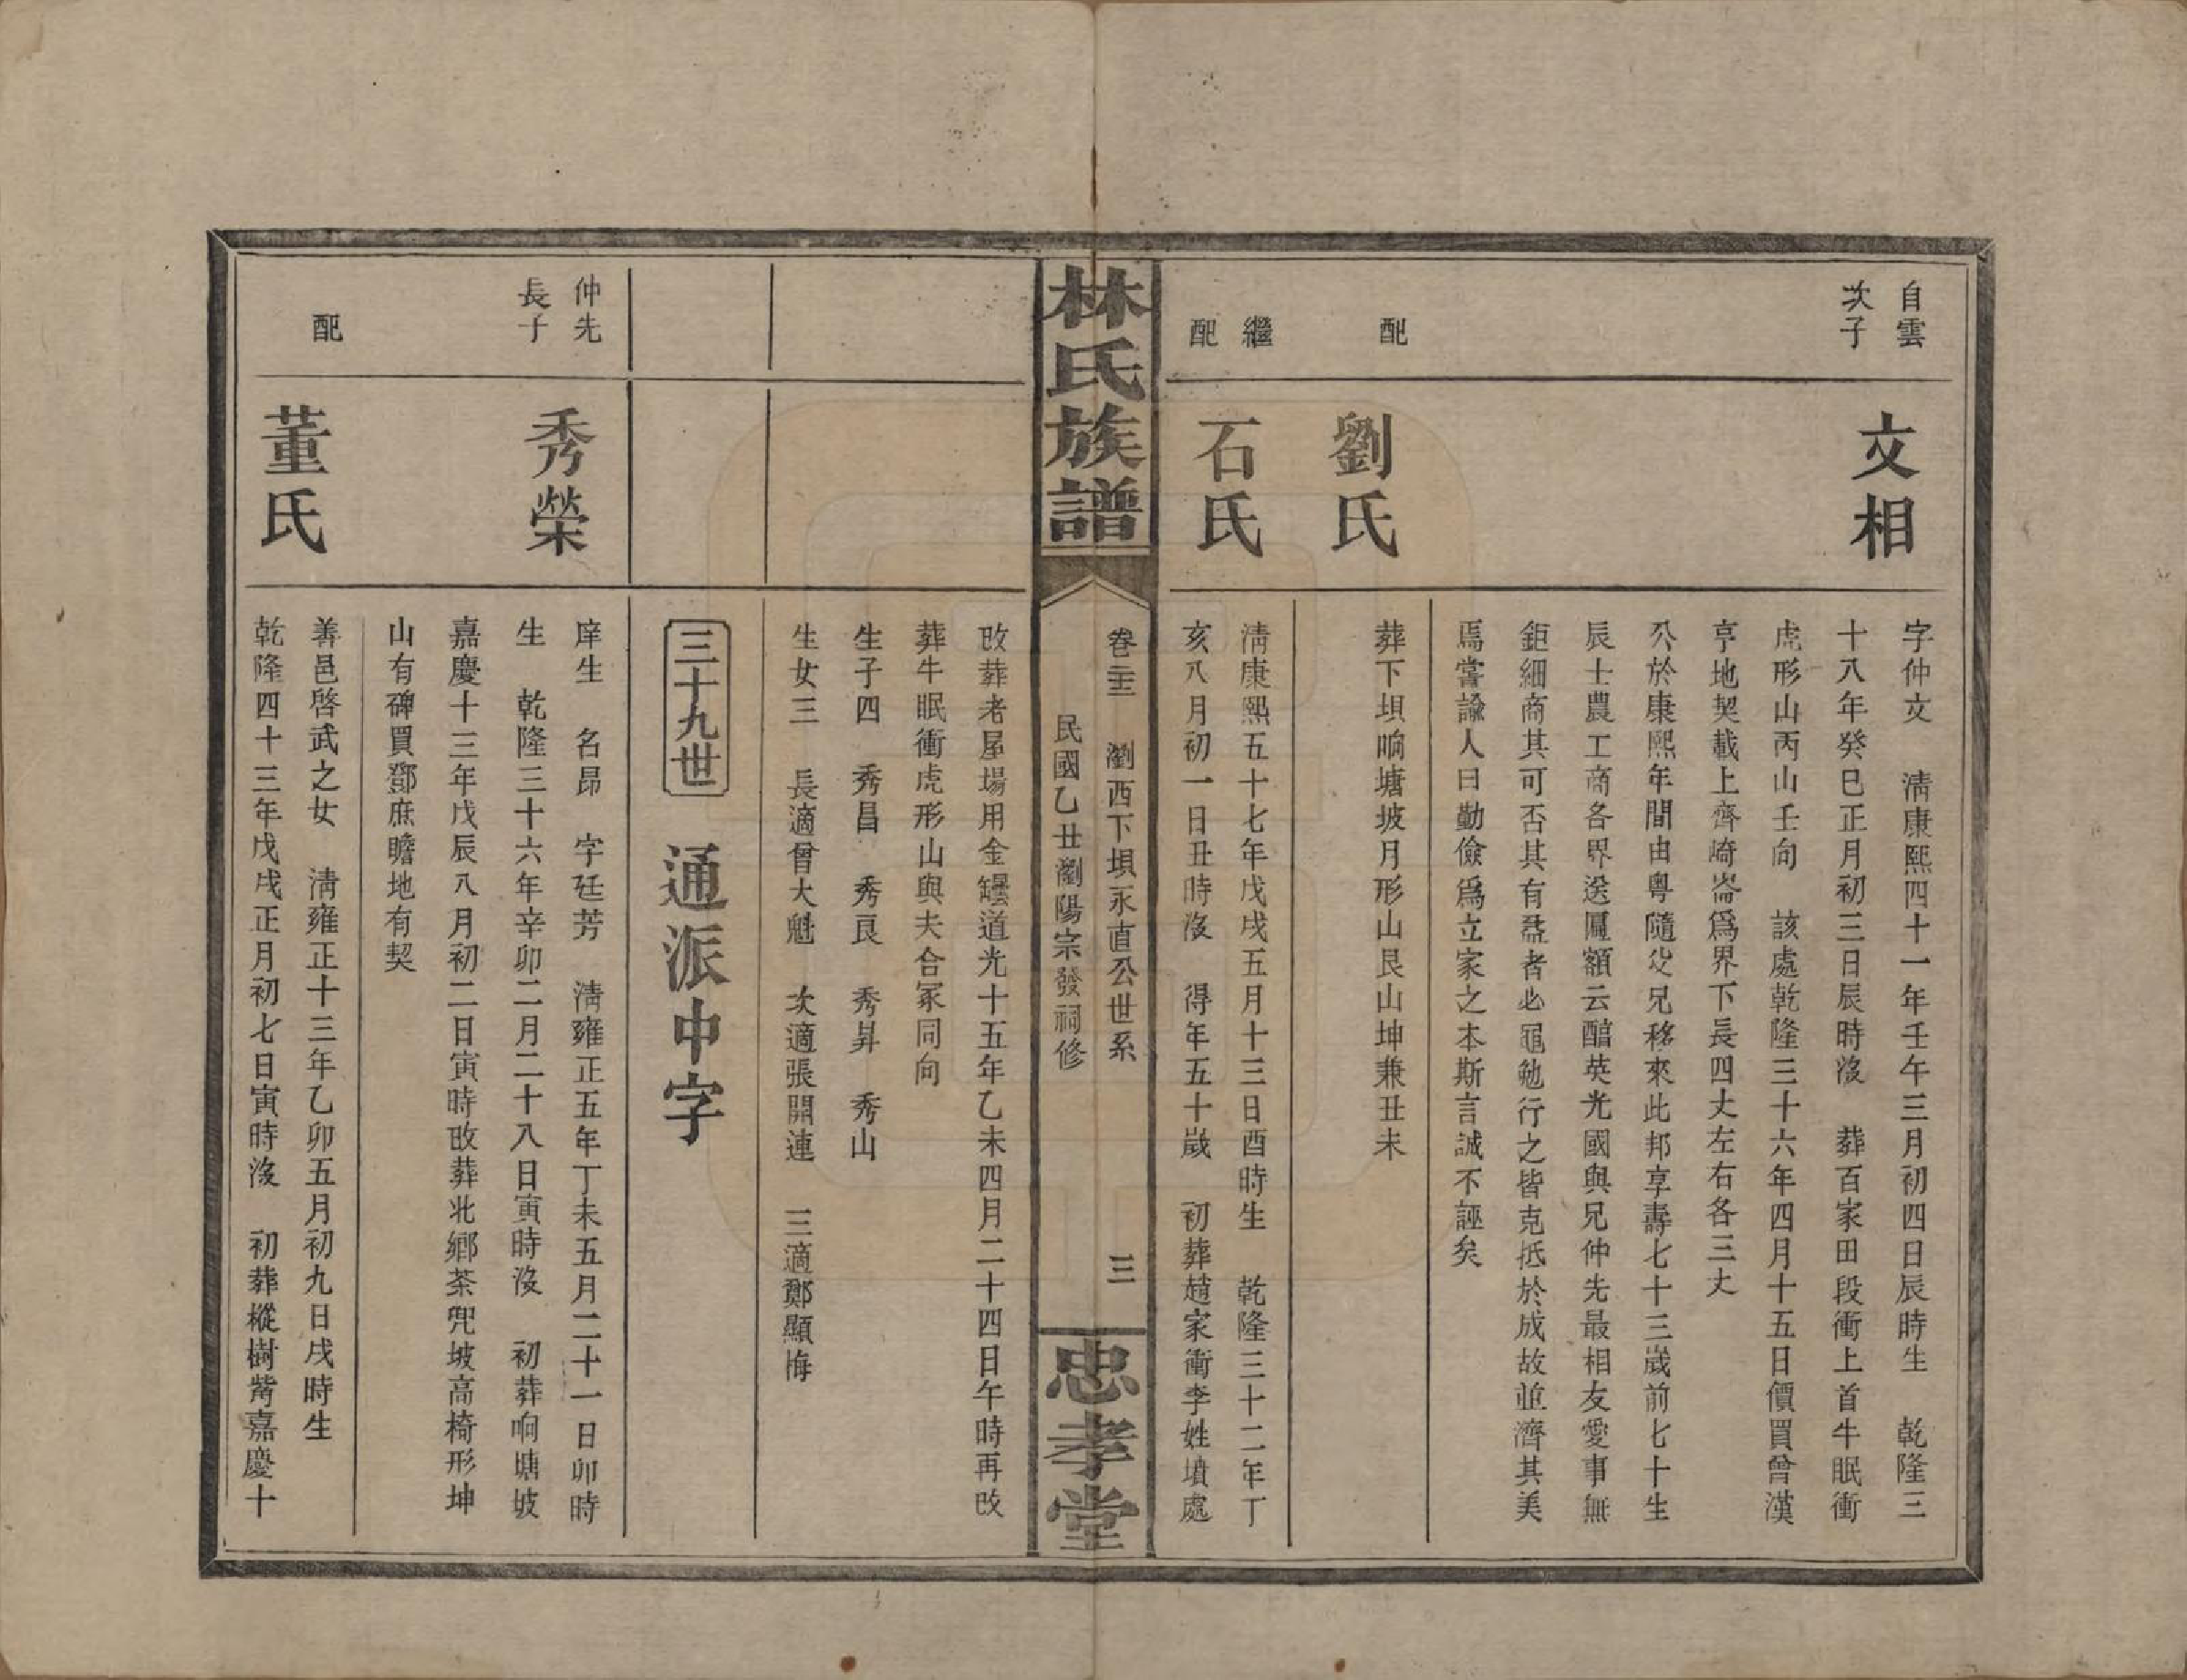 自雲
次子
文相
字仲文　淸康熙四十一年壬午三月初四日辰時生　乾隆三
十八年癸巳正月初三日辰時沒　葬百家田段衝上首牛眠衝
虎形山丙山壬向　該處乾隆三十六年四月十五日價買曾漢
亨地契載上齊崎崙爲界下長四丈左右各三丈
公於康熙年間由粤隨父兄移來此邦享壽七十三歲前七十生
辰士農工商各界送匾額云醕英光國與兄仲先最相友愛事無
鉅細商其可否其有益者必黽勉行之皆克抵於成故並濟其美
焉嘗諭人曰勤儉爲立家之本斯言誠不誣矣
配
劉氏
葬下垻响塘坡月形山艮山坤兼丑未
繼
配
石氏
淸康熙五十七年戊戌五月十三日酉時生　乾隆三十二年丁
亥八月初一日丑時沒　得年五十歲　初葬趙家衝李姓墳處
林氏族譜
卷三十三　瀏西下垻永直公世系　三
民國乙丑瀏陽宗發祠修
忠孝堂
改葬老屋場用金罍道光十五年乙未四月二十四日午時再改
葬牛眠衝虎形山與夫合冢同向
生子四　秀昌　秀良　秀昇　秀山
生女三　長適曾大魁　次適張開連　三適鄭顯梅
三十九世　通派中字
仲先
長子
秀榮
庠生　名昂　字廷芳　淸雍正五年丁未五月二十一日卯時
生　乾隆三十六年辛卯二月二十八日寅時沒　初葬响塘坡
嘉慶十三年戊辰八月初二日寅時改葬北鄉茶兜坡高椅形坤
山有碑買鄧庶瞻地有契
配
董氏
善邑啓武之女　淸雍正十三年乙卯五月初九日戌時生
乾隆四十三年戊戌正月初七日寅時沒　初葬樅樹嘴嘉慶十